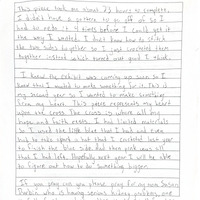 This piece took me about 23 hours to complete.
I didn't have a pattern to go off of so I
had to redo it 4 times before I could get it
the way I wanted. I didn't know how to stitch
the two sides together so I just crocheted them
together instead which turned out good I think.
I knew the exhibit was coming up soon so I
knew that I wanted to make something for it. This is
my second year so I wanted to make something
from my heart. This piece represents my heart
upon the cross. The cross is where all my
hope and faith exists. I had limited materials
so I used the little blue that I had and even
had to redo a hat that I crocheted last year
to finish the blue side. And then pink was all
that I had left. Hopefully next year I will be able
to figure out how to do something bigger.
If you pray can you please pray for my mom Susan
Durbin who is having serious kidney problems, one